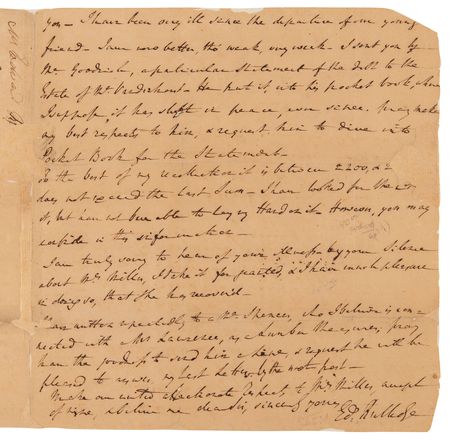 you - I have been very ill since the departure of our young
friend - I am now better, tho' weak, very weak - I sent you by
Mr Goodrich, a particular Statement of the debt to the
Estate of Mr - He put it into his pocket book, where
I suppose, it has slept in peace, ever since. pray make
my best respects to him, & request him to dive into
Pocket Book for the Statement -
To the best of my recollection it is between 2200, & 2
does not exceed the last Sum - I have looked for the
of, but have not been able to lay my Hand on it - However, you may
confide in this information -
I am truly sorry to hear of your illness by your Silence
about Mrs Miller, I take it for granted, & I have much pleasure
in doing so, that She has recovered -
I have written repeatedly to a Mr Spencer, who I believe is con=
nected with Mr Lawrence, my pray
have the goodness to send him a line, & request he will be
pleased to answer my last letter, by the next post -
Make our united affectionate Respects to Mrs Miller, accept
of mine, & believe me dear Sir, sincerely yours
Ed: Rutledge